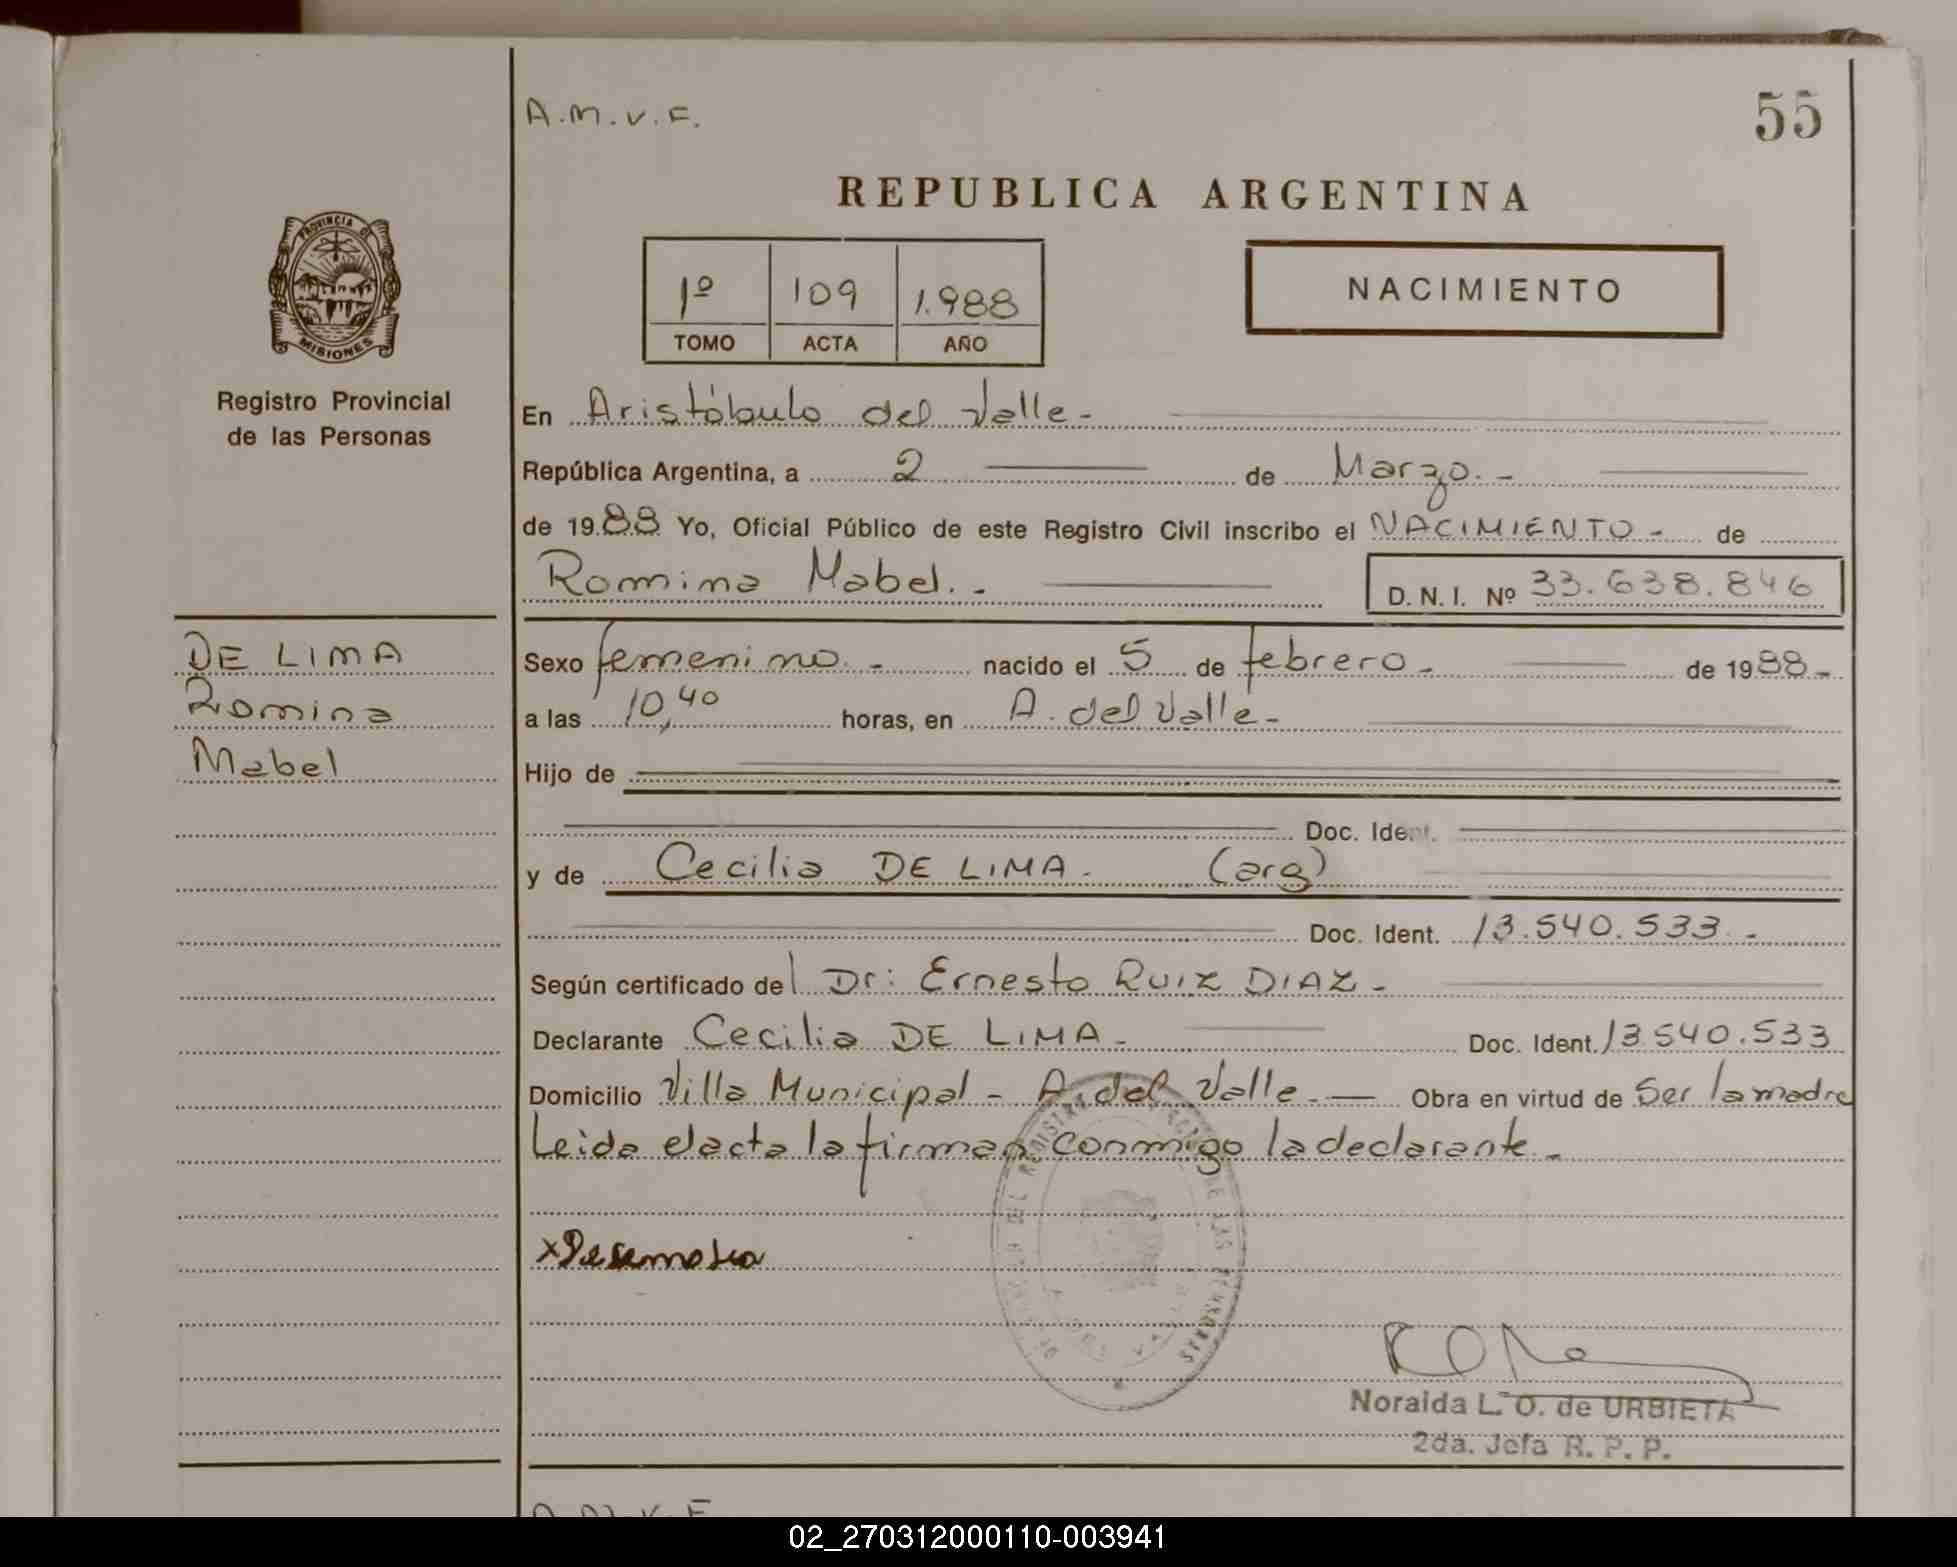 A.M.V.F.
55
REPUBLICA ARGENTINA
PROVINCIA DE
MISIONES
Registro Provincial
de las Personas
1º 109 1.988
TOMO ACTA AÑO
NACIMIENTO
En Aristóbulo del Valle.-
República Argentina, a 2 de Marzo.-
de 1988 Yo, Oficial Público de este Registro Civil inscribo el NACIMIENTO- de
Romina Mabel.-
D. N. I. Nº 33.638.846
DE LIMA
Romina
Mabel
Sexo femenino.- nacido el 5 de febrero.- de 1988-
a las 10,40 horas, en A. del Valle-
Hijo de
Doc. Ident.
y de Cecilia DE LIMA. (arg)
Doc. Ident. 13.540.533.-
Según certificado del Dr: Ernesto RUIZ DIAZ-
Declarante Cecilia DE LIMA- Doc. Ident. 13.540.533
Domicilio Villa Municipal - A. del Valle.- Obra en virtud de Ser la madre
Leida el acta la firman conmigo la declarante.-
Noraida L. O. de URBIETA
2da. Jefa R. P. P.
A.M.V.F
02_270312000110-003941